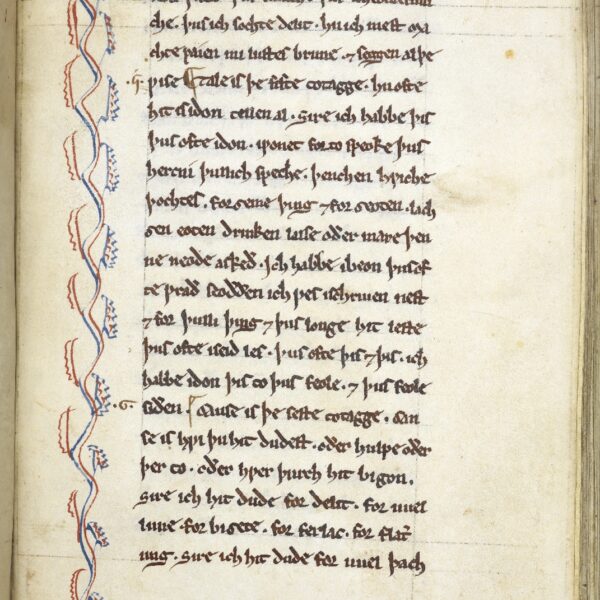 che . þus ich sochte delit . hu ich mest ma
chte paien mi lustes brune . ⁊ seggen al þe
.5. ƿise Tale is þe fifte totagge . hu ofte
hit is idon tellen al . Sire ich habbe þis
þus ofte idon . iƿonet forto speoke þus
hercni þullich speche . þenchen hƿiche
þochtes . forȝeme þing ⁊ for ȝeoten . lach
ȝen eoten drinken lasse oðer mare þen
ne neode asked . Ich habbe ibeon þus of
te ƿrað seoððen ich ƿes ischriuen nest
⁊ for þulli þing ⁊ þus longe hit leste
þus ofte iseid les . þus ofte þis ⁊ þis . ich
habbe idon þis to þus feole . ⁊ þus feole
.6. siden . Cause is þe seste totagge . Cau
se is hƿi þu hit dudest . oðer hulpe oðer
þer to . oðer hƿer þurch hit bigon .
Sire ich hit dude for delit . for uuel
luue . for biȝete . for ferlac . for flat
ung . Sire ich hit dude for uuel þach